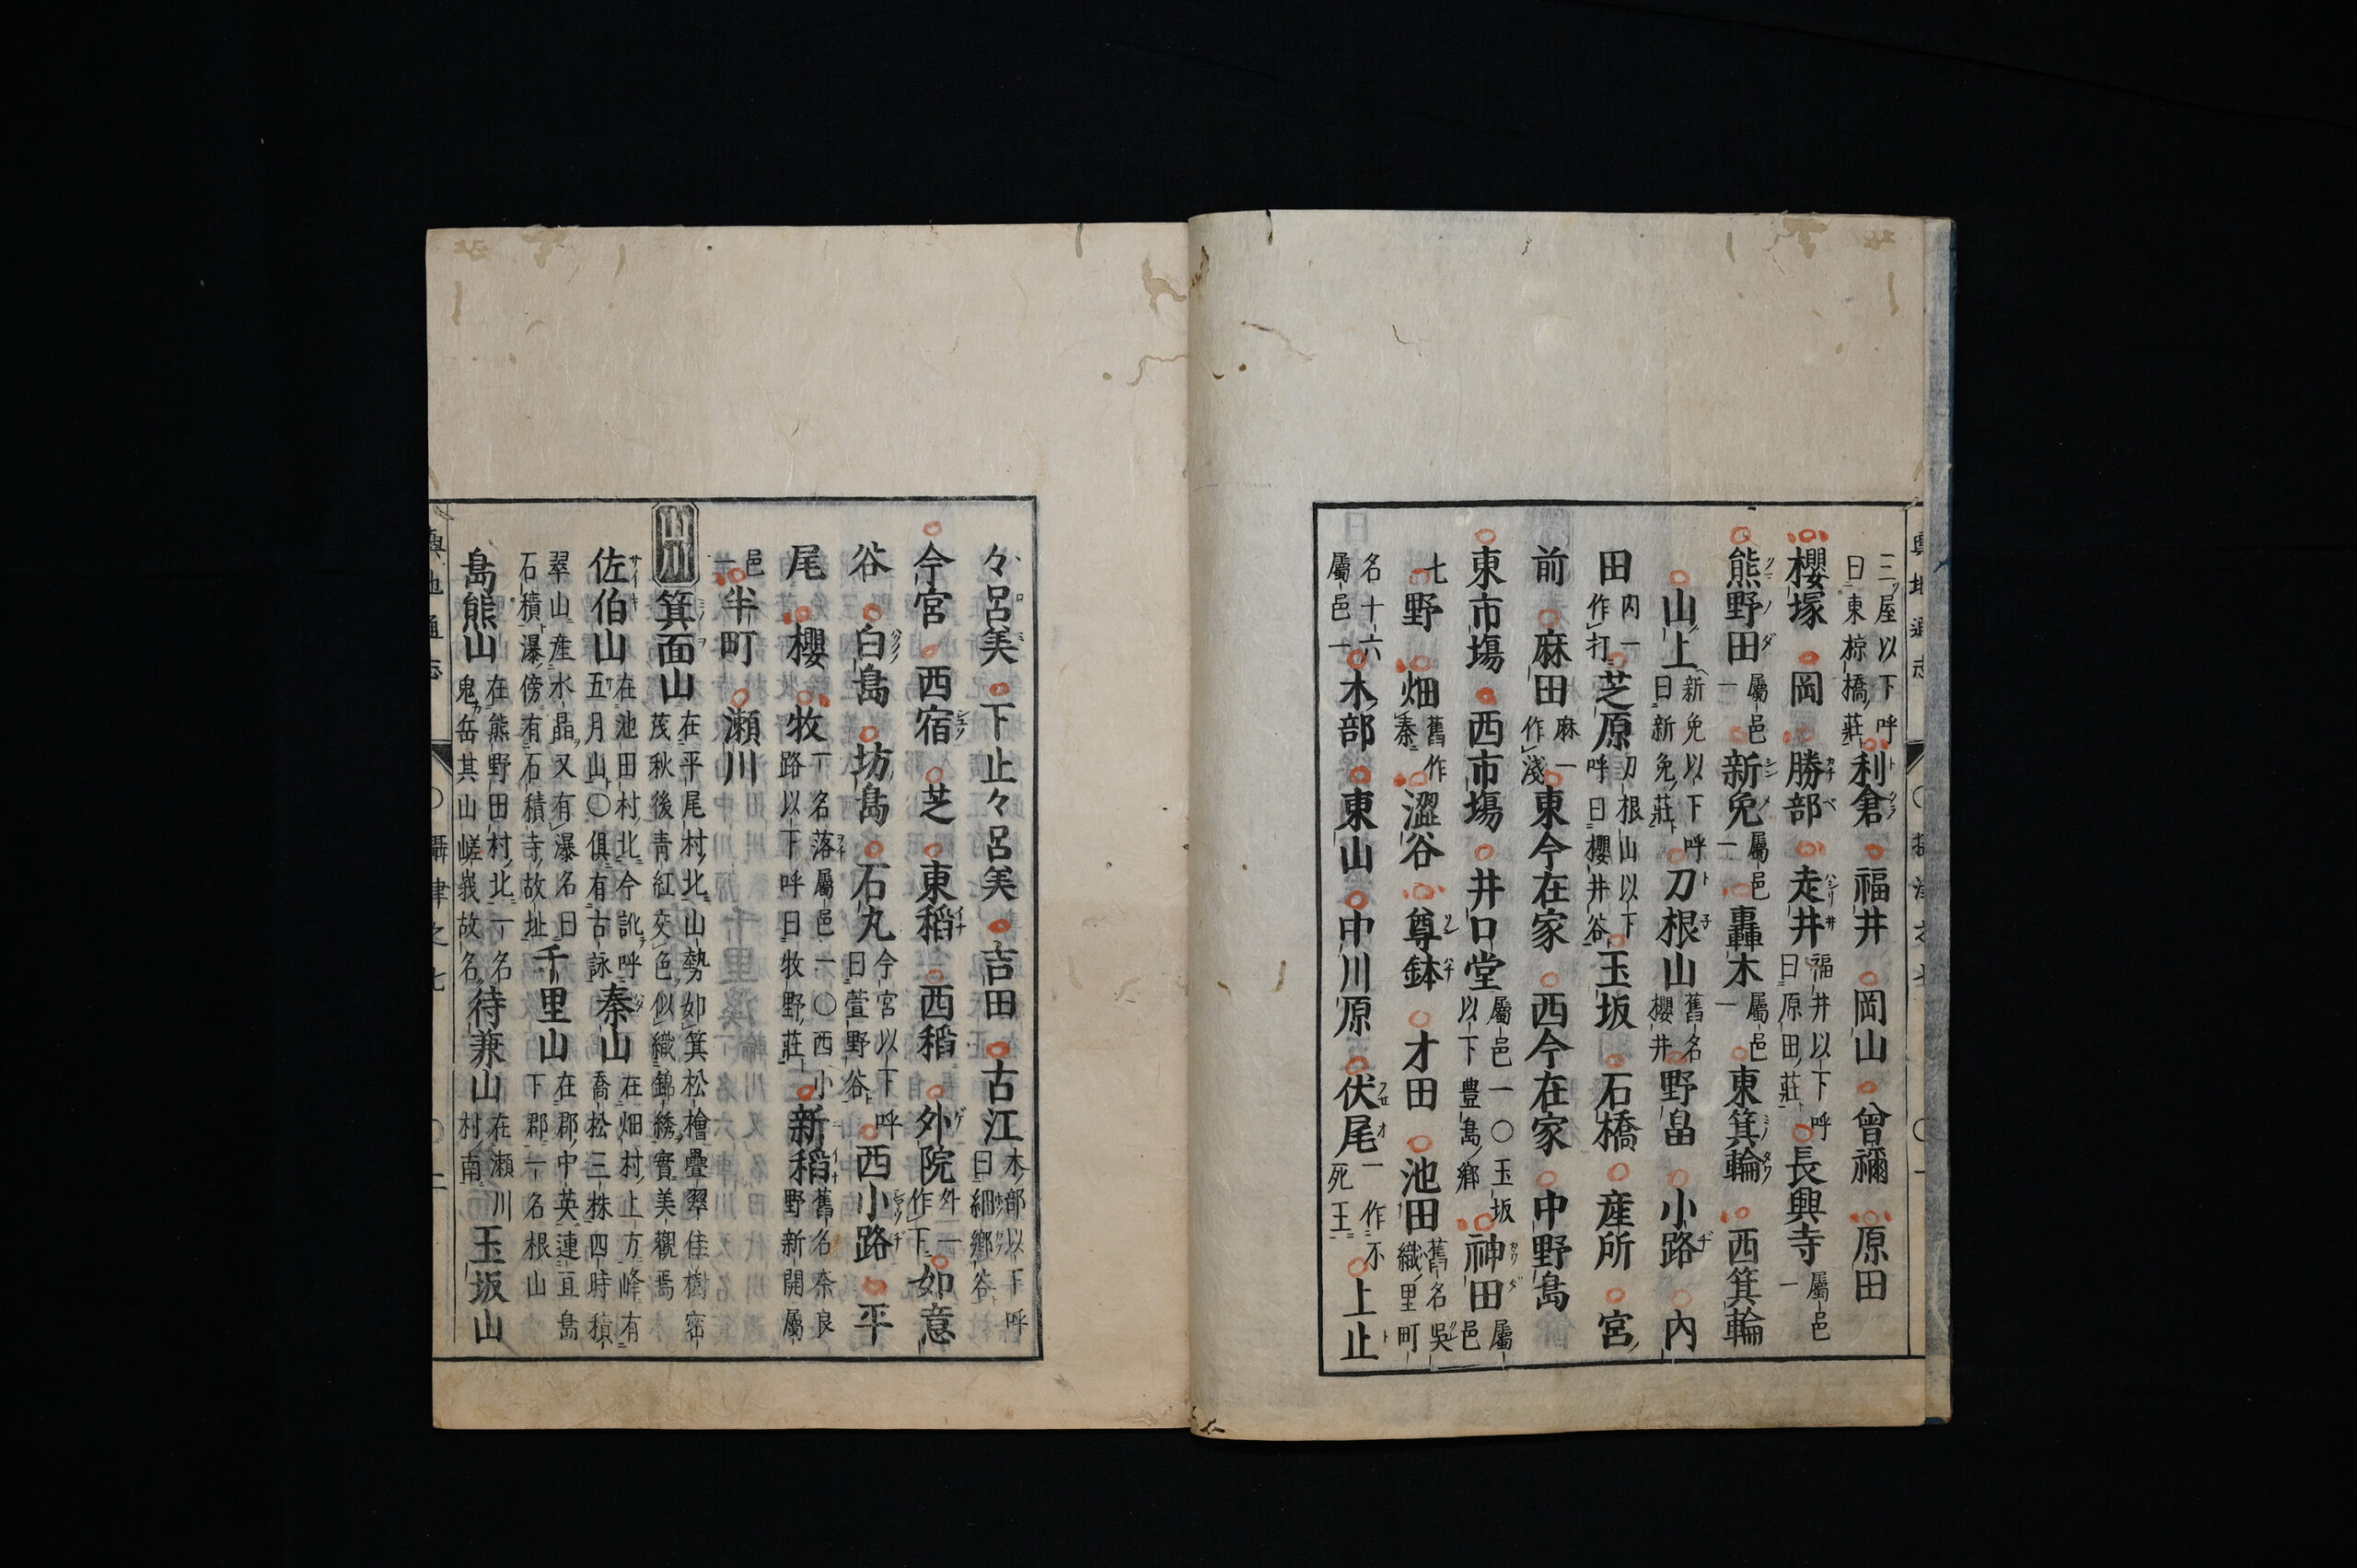 三屋以下呼曰東椋橋莊 利倉 福井 岡山 曾禰 原田
櫻塚 岡 勝部 走井福井以下呼曰原田莊 長興寺屬邑一
熊野田屬邑一 新免屬邑一 轟木屬邑一 東箕輪 西箕輪
山上新免以下呼曰新免莊 刀根山舊名櫻井 野畠 小路 内
田内一作打 芝原刀根山以下呼曰櫻井谷 玉坂 石橋 産所 宮
前 麻田麻一作淺 東今在家 西今在家 中野島
東市場 西市場 井口堂屬邑一〇玉坂以下豊島郷 神田屬邑
七 野 畑舊作秦 澀谷 尊鉢 才田 池田舊名吳織里町
名十六屬邑一 木部 東山 中川原 伏尾一作不死王 上止
々呂美 下止々呂美 吉田 古江木部以下呼曰細郷谷
今宮 西宿 芝 東稻 西稻 外院外一作下 如意
谷 白島 坊島 石丸今宮以下呼曰萱野谷 西小路 平
尾 櫻 牧一名落屬邑一〇西小路以下呼曰牧野莊 新稻舊名奈良野新開屬
邑一 半町 瀬川
山 箕面山在平尾村北山勢如箕松檜疊翠佳樹密茂秋後青紅交色似織錦綉實美觀焉
佐伯山在池田村北今訛呼五月山〇俱有古詠 秦山在畑村上方峰有喬松三株四時積
翠山産水晶又有瀑名曰石積瀑傍有石積寺故址 千里山在郡中英連亘島下郡一名根山
島熊山在熊野田村北一名鬼岳其山嵯峩故名 待兼山在瀬川村南 玉坂山